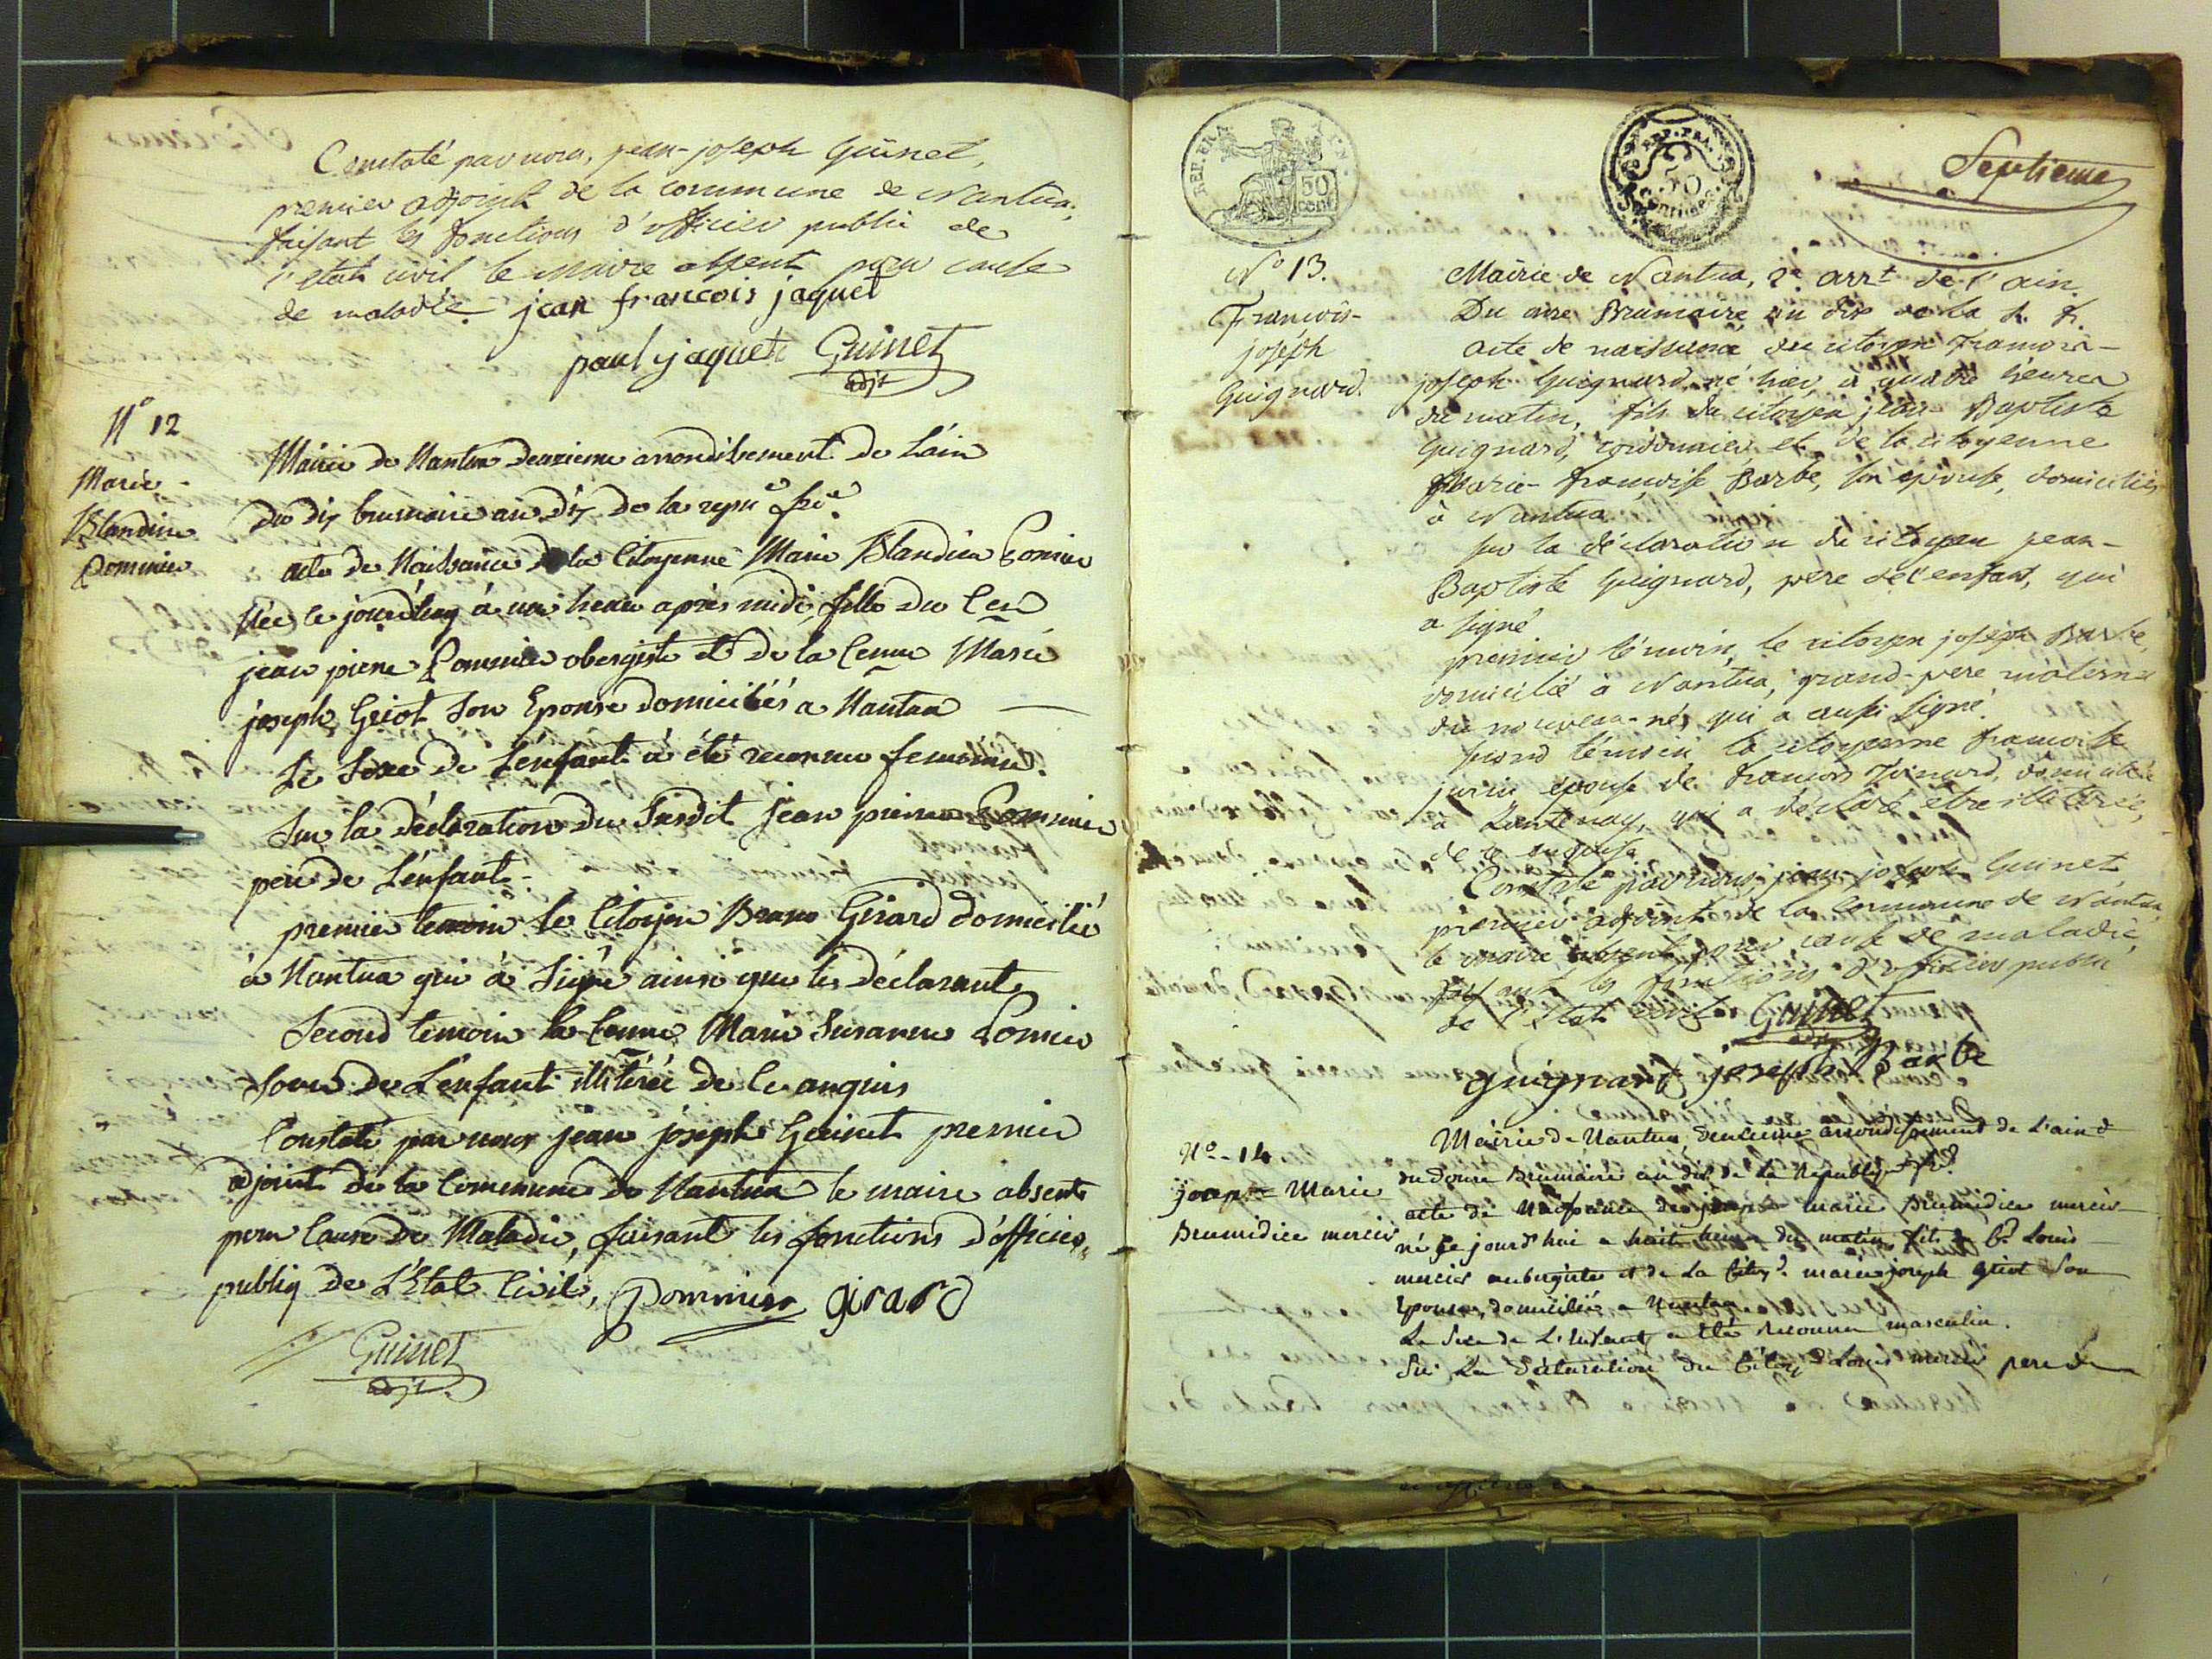 Constaté par nous, jean-joseph Guinet,
premier adjoint de la commune de Nantua,
faisant les fonctions d'officier public de
l'etat civil le maire absent pour cause
de maladie jean françois jaquet
paul jaquet Guinet
adjt
N° 12
Marie
Blandine
Pommier
Mairie de Nantua deuzieme arrondissement de L'ain
du dix brumaire an dix de la repue frse
acte de Naissance de la Citoyenne Marie Blandine Pomier
Née le jourdhuy à une heure après midi, fille du Cen
jean pierre Pommier obergiste et de la Cenne Marie
joseph Griot Son Epouse domiciliés a Nantua
Le Sexe de L'enfant à été reconnu feminin.
Sur la déclaration du Susdit jean pierre Pommier
pere de L'enfant.
premier temoin le Citoyen Bruno Girard domicilié
à Nantua qui à Signé ainsi que les déclarant
Second temoin la Cenne Marie Susanne Pomier
Soeur de L'enfant illitérée de ce enquis
Constaté par nous jean joseph Guinet premier
adjoint de la Commune de Nantua le maire absent
pour Cause de Maladie, faisant les fonctions d'officier
publiq de L'Etat Civil, Pommier girard
Guinet
adjt.
REP. FRA
50
cent
REP. FRA.
50
Centimes
Septieme
N° 13.
François-
joséph
Guignard.
Mairie de Nantua, 2e. arrt de l'ain
Du onze Brumaire an dix de la R. fr.
acte de naissance du citoyen François-
joseph Guignard, né hier, à quatre heures
du matin, fils du citoyen jean Baptiste
Guignard, cordonnier et de la citoyenne
Marie-françoise Barbe, son epouse, domiciliés
à Nantua
sur la déclaration du citoyen jean-
Baptiste Guignard, père de l'enfant, qui
a signé
premier témoin, le citoyen joseph Barbe,
domicilié à Nantua, grand-pere maternel
du nouveau-né, qui a aussi signé.
second témoin la citoyenne françoise
épouse de françois domiciliée
à Lantenay, qui a déclaré etre illitérée,
de ce enquise
Constaté par nous, jean-joseph Guinet
premier adjoint de la commune de Nantua,
le maire absent pour cause de maladie,
faisant les fonctions d'officier public
de l'Etat civil Guinet
adjt
guignard joseph Barbe
N°-14
joseph Marie
Brumidice mercier
Mairie de Nantua deuxieme arrondissement de L'ain
du Douze Brumaire an dix de La Republique fse
acte de Naissance de joseph marie Brumidice mercier
né Ce jourd'hui a huit heures du matin fils du Cn Louis
mercier aubergiste et de La Citoye marie joseph griot Son
Epouse, domiciliés a Nantua
Le Sexe de L'Enfant a été reconnu masculin.
Sur La declaration du Citoyn Louis mercier pere de